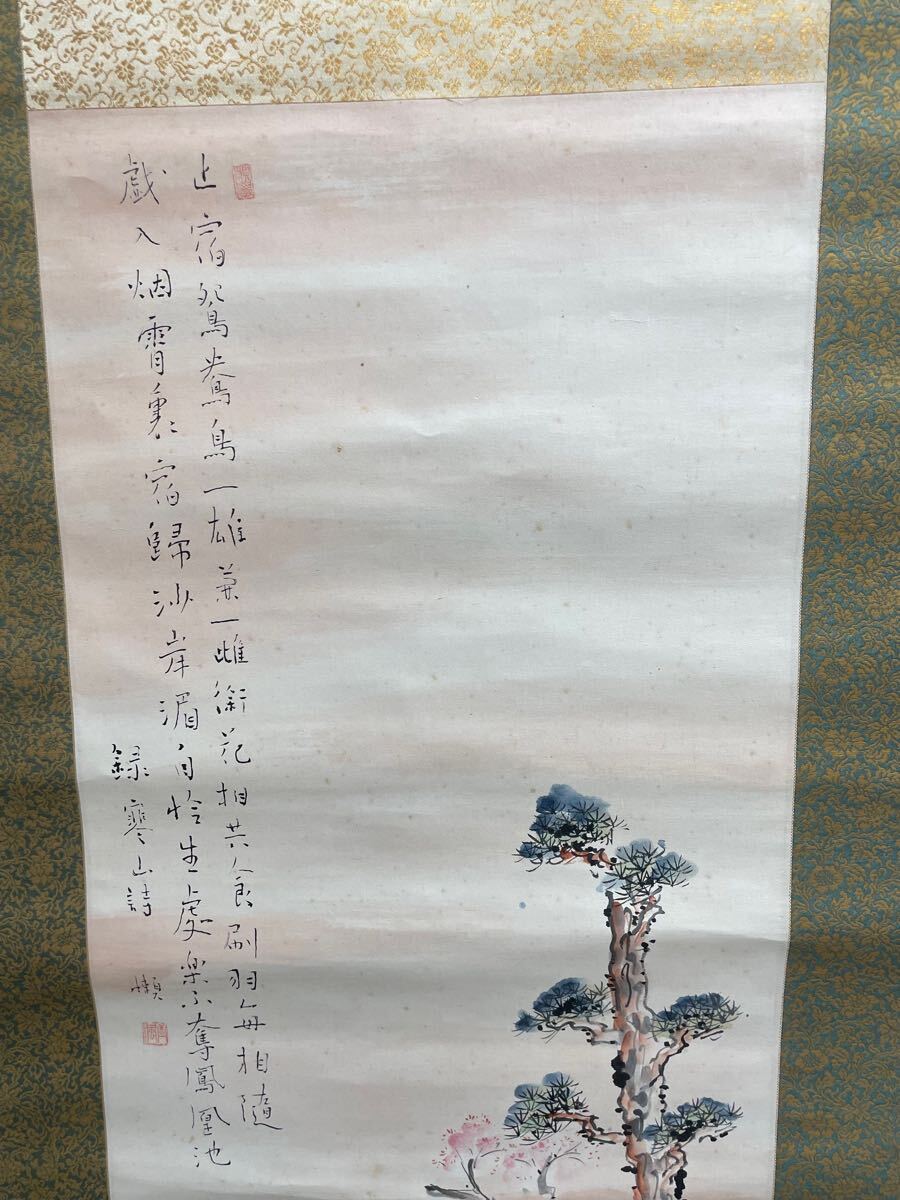 止宿鴛鴦鳥一雄兼一雌銜花相共食刷羽毎相隨
戯入烟霄裏宿歸沙岸湄自怜生處楽不奪鳳凰池
録寒山詩
懶